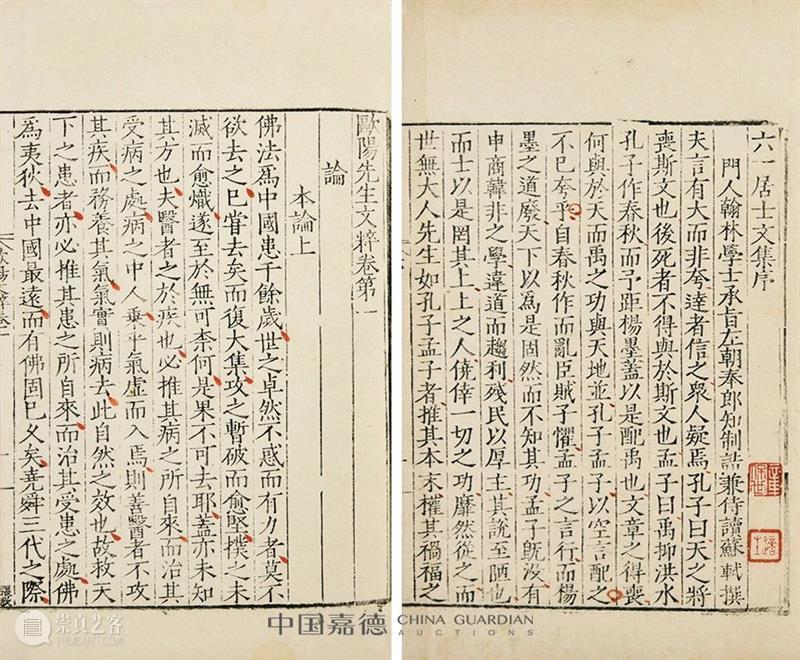 六一居士文集序
門人翰林學士承旨左朝奉郎知制誥兼侍讀蘇軾撰
夫言有大而非夸達者信之衆人疑焉孔子曰天之將
喪斯文也後死者不得與於斯文也孟子曰禹抑洪水
孔子作春秋而予距楊墨蓋以是配禹也文章之得喪
何與於天而禹之功與天地並孔子孟子以空言配之
不已夸乎自春秋作而亂臣賊子懼孟子之言行而楊
墨之道廢天下以為是固然而不知其功孟子旣没有
申商韓非之學違道而趨利殘民以厚主其說至陋也
而士以是罔其上上之人僥倖一切之功靡然從之而
世無大人先生如孔子孟子者推其本末權其禍福之
歐陽先生文粹卷第一
論
本論上
佛法為中國患千餘歲世之卓然不惑而有力者莫不
欲去之已甞去矣而復大集攻之暫破而愈堅撲之未
滅而愈熾遂至於無可柰何是果不可去耶蓋亦未知
其方也夫醫者之於疾也必推其病之所自來而治其
受病之處病之中人乗乎氣虚而入焉則善醫者不攻
其疾而務養其氣氣實則病去此自然之效也故救天
下之患者亦必推其患之所自來而治其受患之處佛
為夷狄去中國最遠而有佛固已乆矣堯舜三代之際
崇真艺客
中国嘉德 CHINA GUARDIAN
AUCTIONS